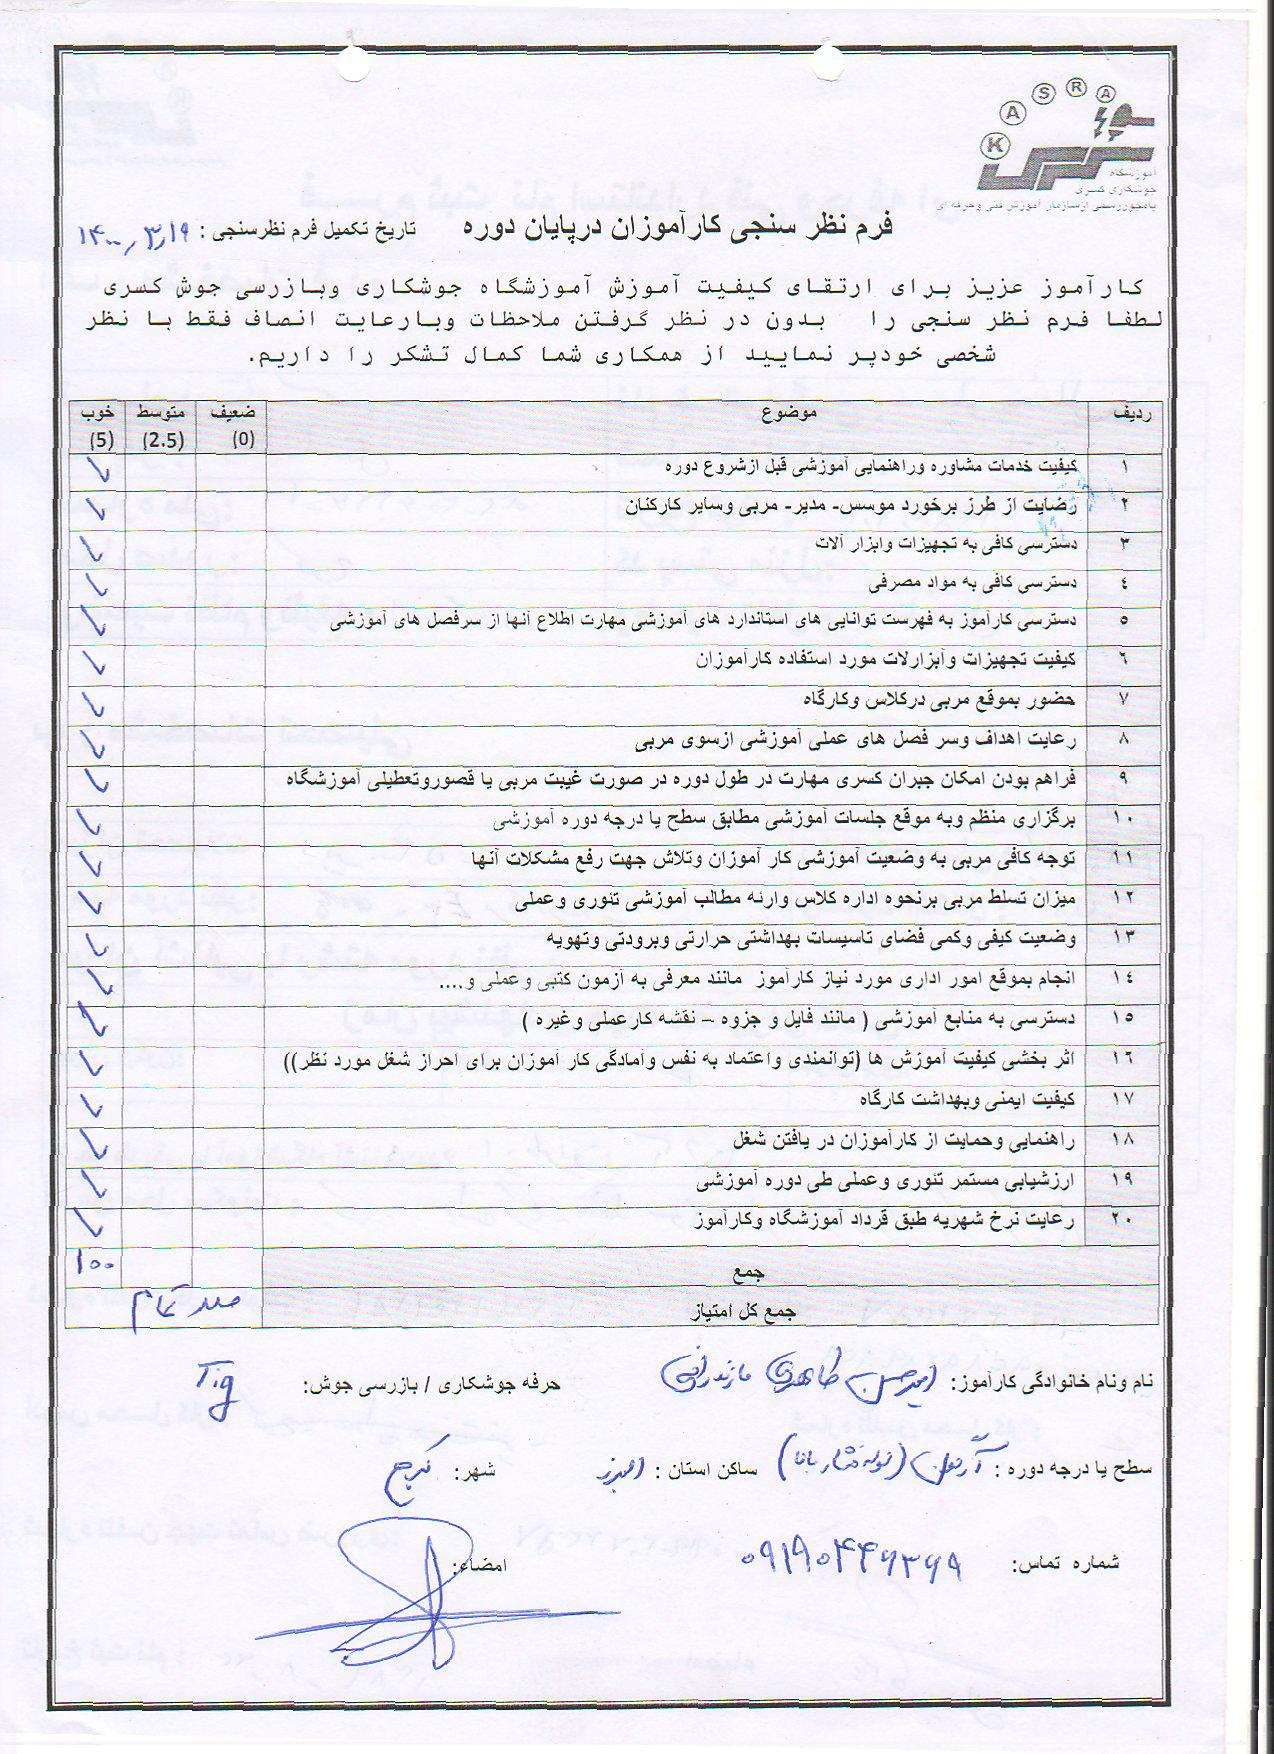 K A S R A
آموزشگاه
جوشکاری کسری
بامجوزرسمی ازسازمان آموزش فنی وحرفه ای
فرم نظر سنجی کارآموزان درپایان دوره تاریخ تکمیل فرم نظرسنجی : ۱۴۰۰,۳,۱۹
کارآموز عزیز برای ارتقای کیفیت آموزش آموزشگاه جوشکاری وبازرسی جوش کسری
لطفا فرم نظر سنجی را بدون در نظر گرفتن ملاحظات وبارعایت انصاف فقط با نظر
شخصی خودپر نمایید از همکاری شما کمال تشکر را داریم.
ردیف موضوع ضعیف (0) متوسط (2.5) خوب (5)
۱ کیفیت خدمات مشاوره وراهنمایی آموزشی قبل ازشروع دوره
۲ رضایت از طرز برخورد موسس- مدیر- مربی وسایر کارکنان
۳ دسترسی کافی به تجهیزات وابزار آلات
۴ دسترسی کافی به مواد مصرفی
۵ دسترسی کارآموز به فهرست توانایی های استاندارد های آموزشی مهارت اطلاع آنها از سرفصل های آموزشی
۶ کیفیت تجهیزات وآبزارلات مورد استفاده کارآموزان
۷ حضور بموقع مربی درکلاس وکارگاه
۸ رعایت اهداف وسر فصل های عملی آموزشی ازسوی مربی
۹ فراهم بودن امکان جبران کسری مهارت در طول دوره در صورت غیبت مربی یا قصوروتعطیلی آموزشگاه
۱۰ برگزاری منظم وبه موقع جلسات آموزشی مطابق سطح یا درجه دوره آموزشی
۱۱ توجه کافی مربی به وضعیت آموزشی کار آموزان وتلاش جهت رفع مشکلات آنها
۱۲ میزان تسلط مربی برنحوه اداره کلاس وارئه مطالب آموزشی تئوری وعملی
۱۳ وضعیت کیفی وکمی فضای تاسیسات بهداشتی حرارتی وبرودتی وتهویه
۱۴ انجام بموقع امور اداری مورد نیاز کارآموز مانند معرفی به آزمون کتبی وعملی و....
۱۵ دسترسی به منابع آموزشی ( مانند فایل و جزوه – نقشه کارعملی وغیره )
۱۶ اثر بخشی کیفیت آموزش ها (توانمندی واعتماد به نفس وآمادگی کار آموزان برای احراز شغل مورد نظر))
۱۷ کیفیت ایمنی وبهداشت کارگاه
۱۸ راهنمایی وحمایت از کارآموزان در یافتن شغل
۱۹ ارزشیابی مستمر تئوری وعملی طی دوره آموزشی
۲۰ رعایت نرخ شهریه طبق قرداد آموزشگاه وکارآموز
جمع ۱۰۰
جمع کل امتیاز صد تمام
نام ونام خانوادگی کارآموز: امیرحسن طاهری مازندرانی حرفه جوشکاری / بازرسی جوش: Tig
سطح یا درجه دوره : آرگون (لوله فشار بالا) ساکن استان : البرز شهر: کرج
شماره تماس: ۰۹۱۹۰۴۴۶۳۶۹ امضاء: